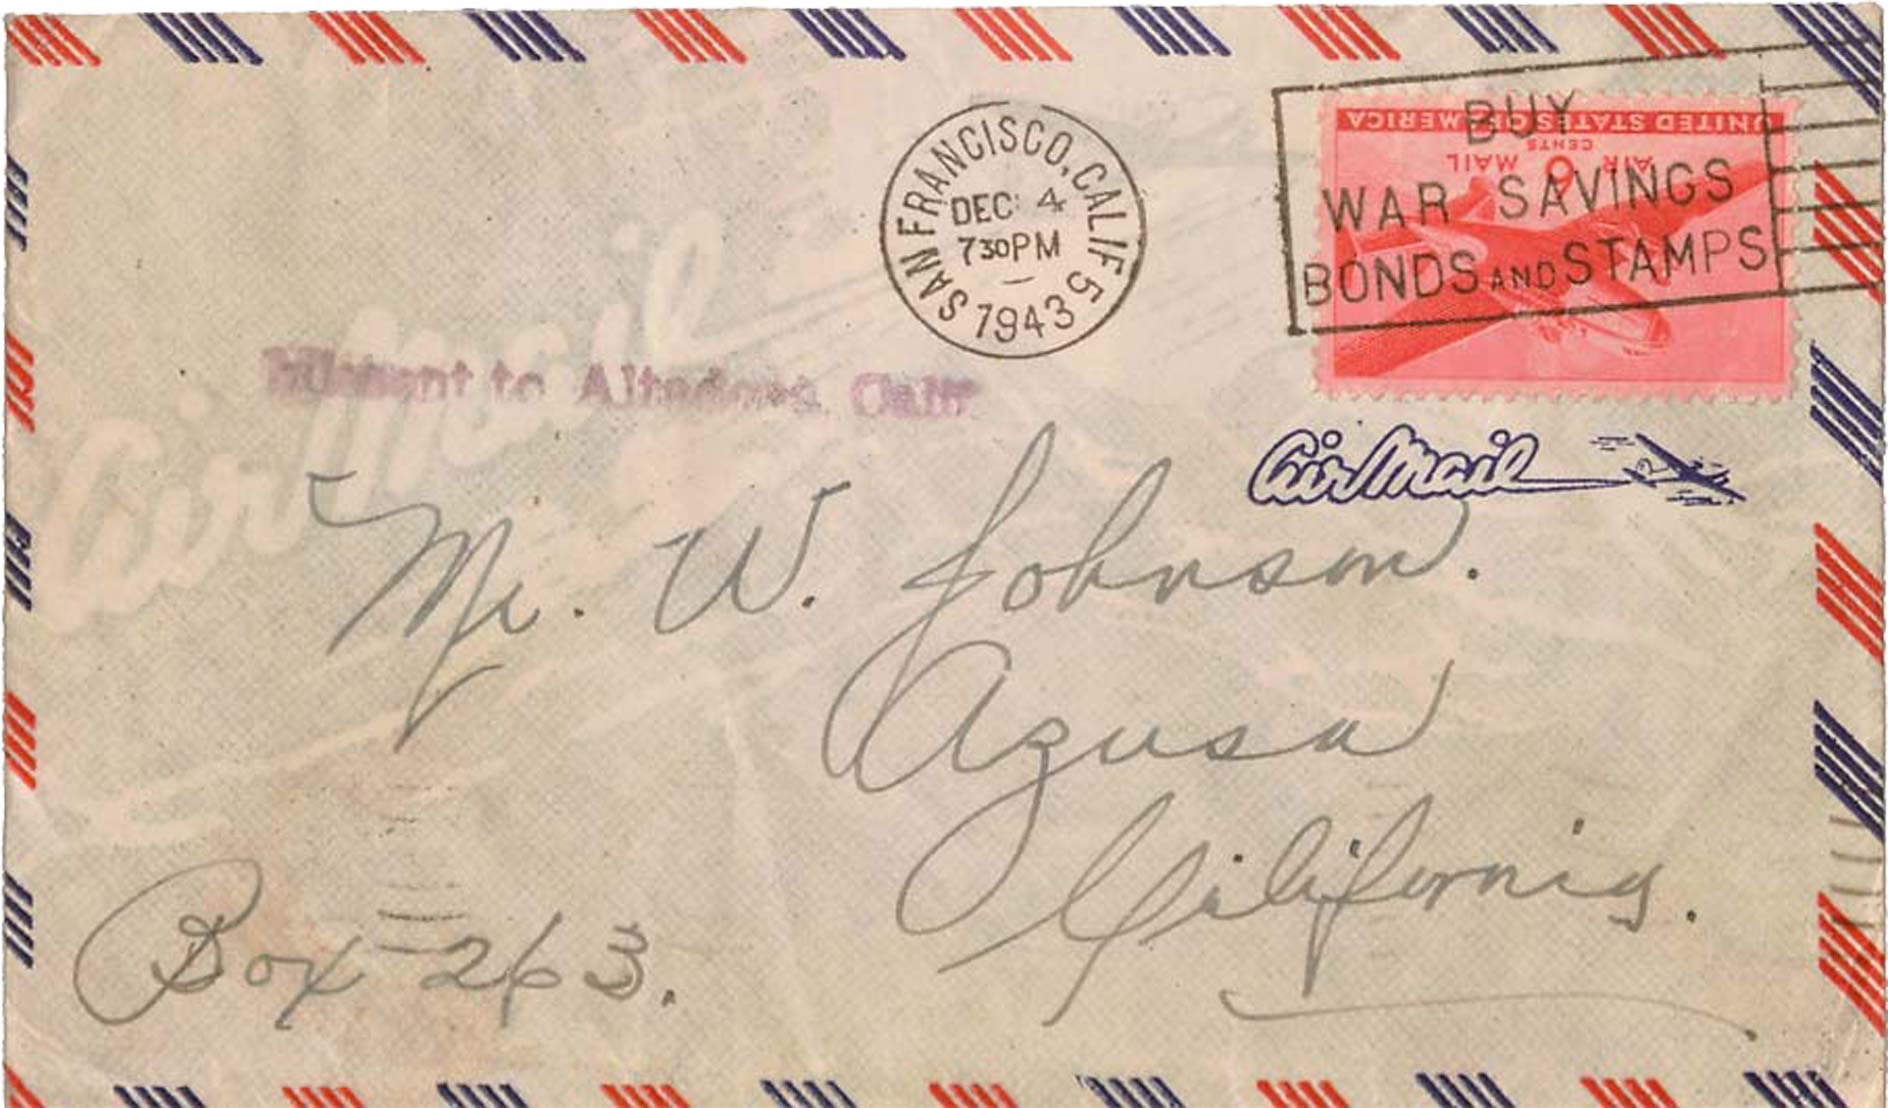 SAN FRANCISCO, CALIF 5
DEC 4
730PM
1943
BUY
WAR SAVINGS
BONDS AND STAMPS
UNITED STATES OF AMERICA
6 CENTS
AIR MAIL
Missent to Altadena, Calif
Air Mail
Air Mail
Mr. W. Johnson.
Azusa
California.
Box 263.